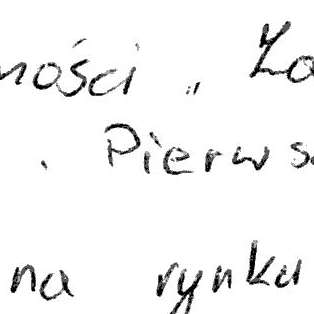 ności „ Za
. Pierws
na rynku